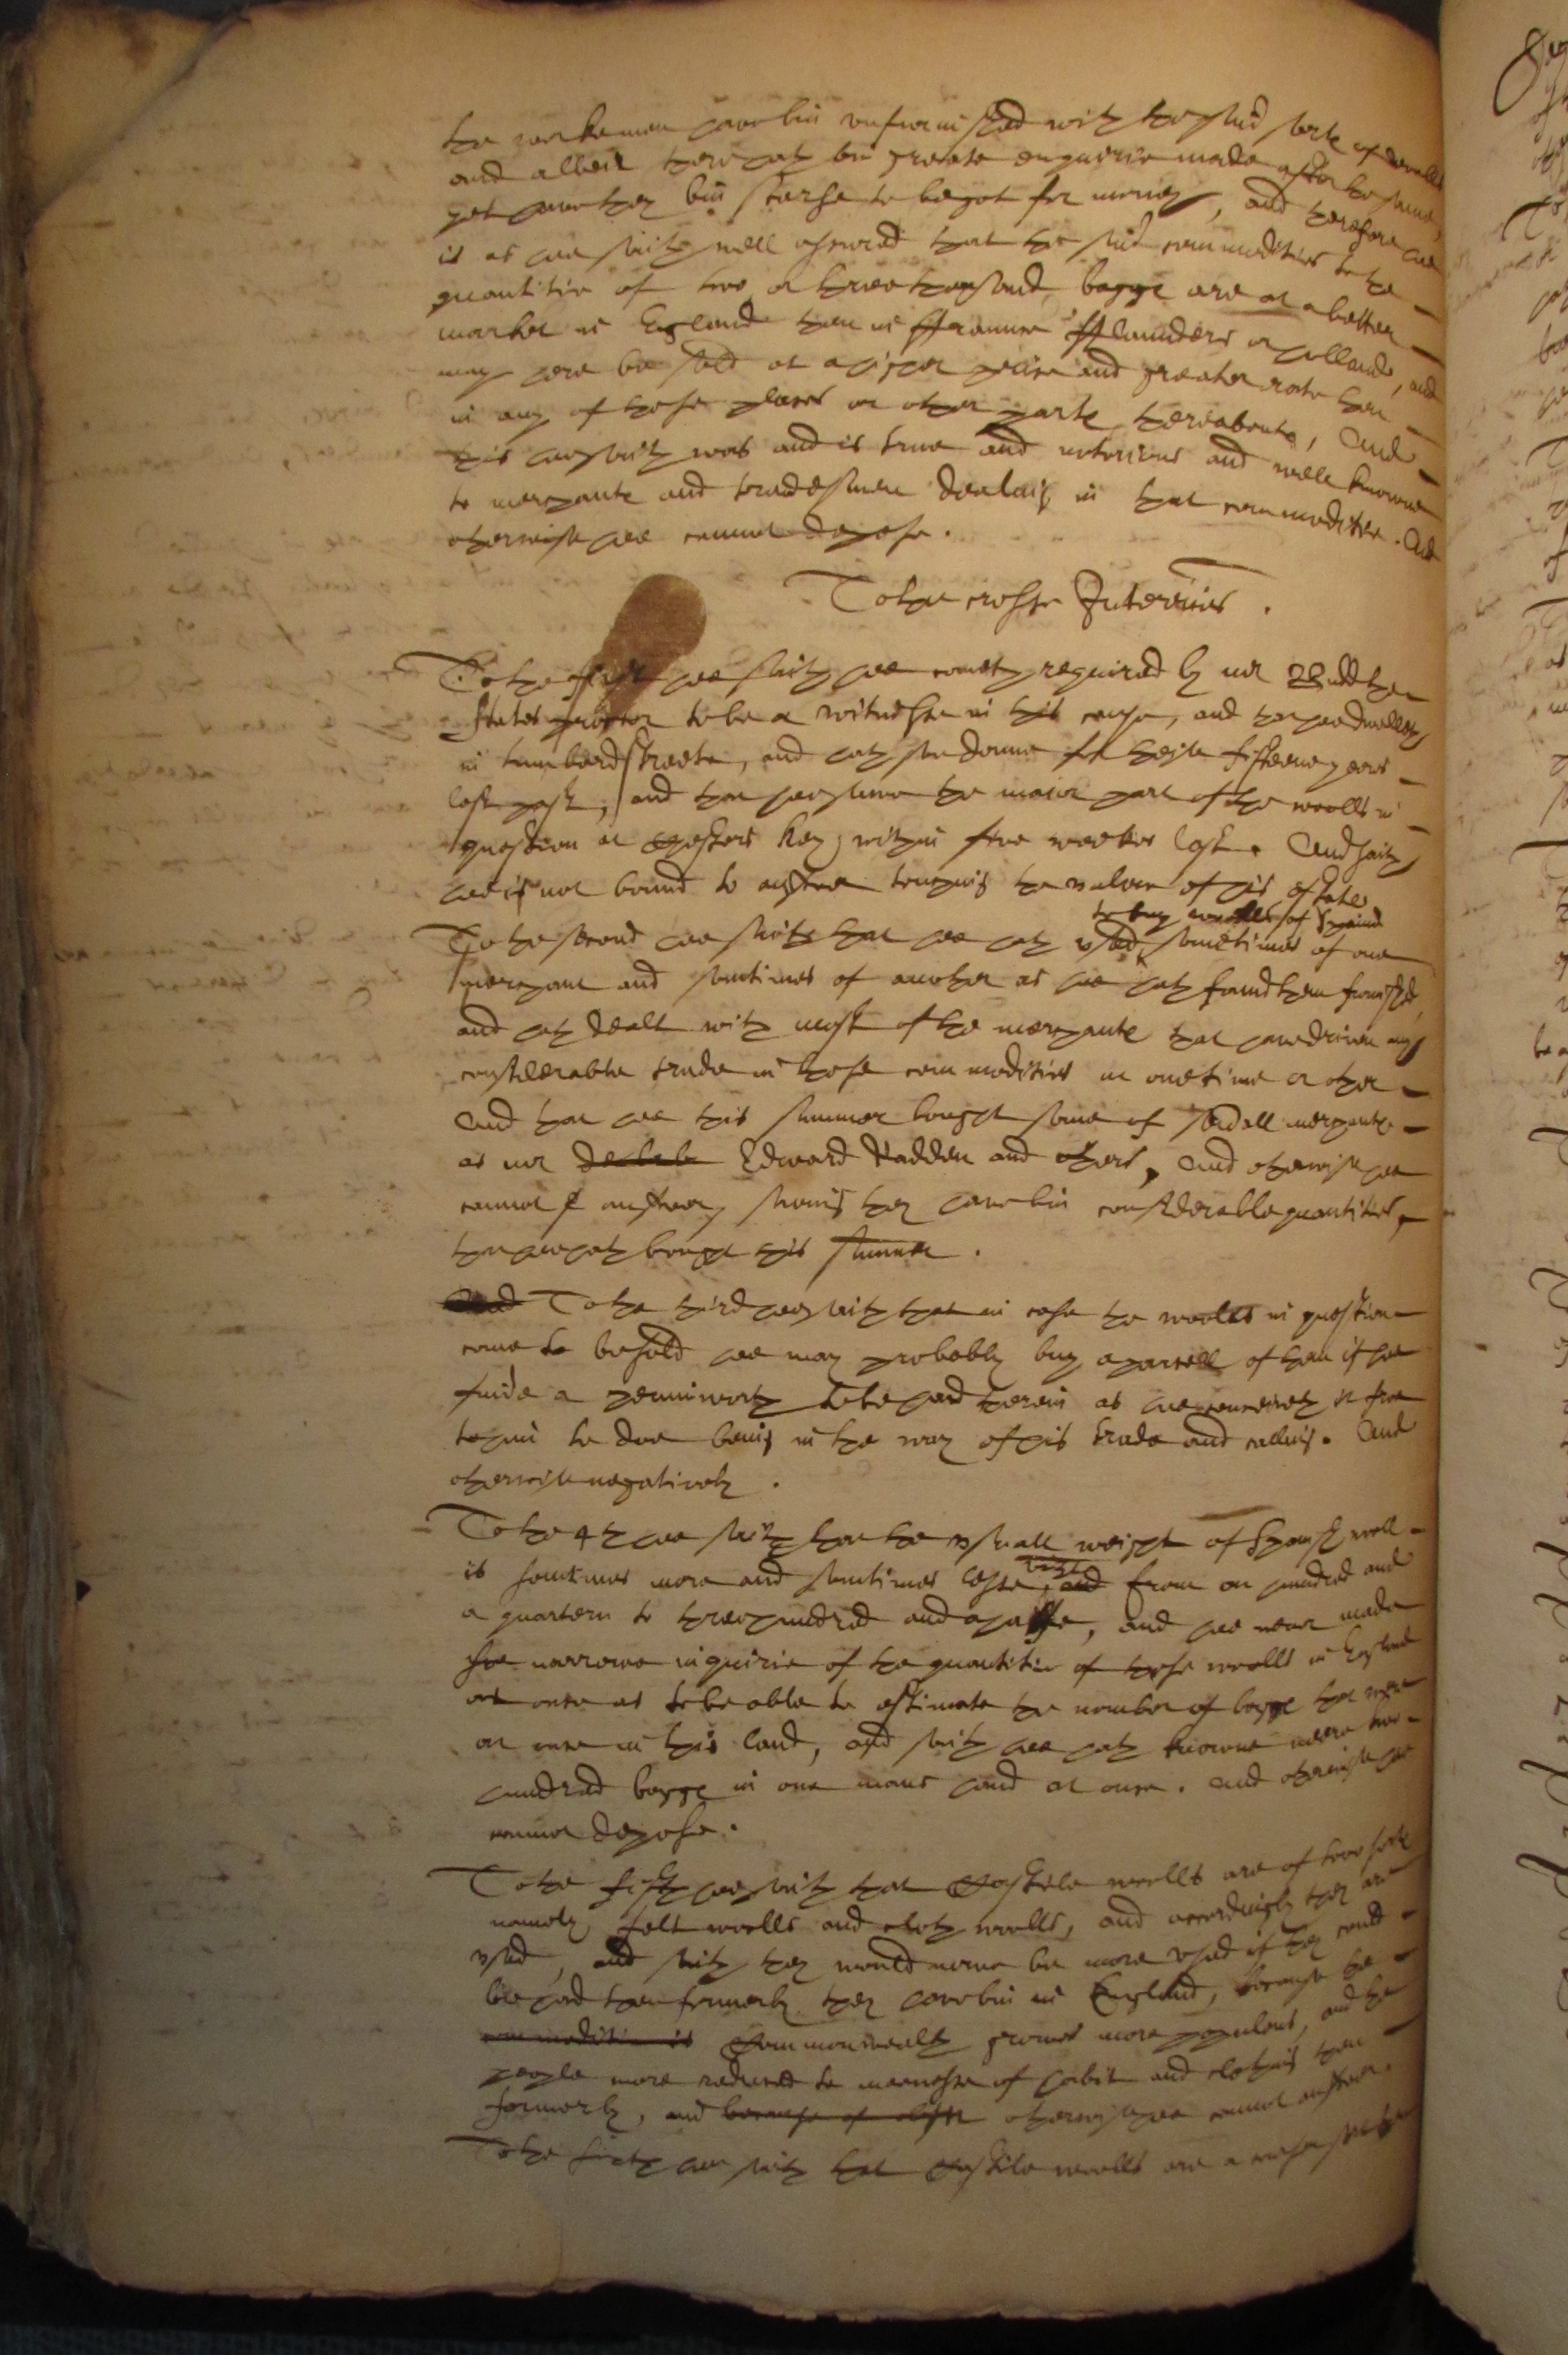 the workemen have bin unfurnished with the said sorte of woolls
and albeit there hath bin greate enquirie made after the same,
yet have they bin scarse to be got for money, and therefore hee
is as hee saith well assured that the said commodities to the
quantitie of two or three thousand baggs are at a better
market in England then in ffrannce fflaunders or holland, and
may here be sold at a higher price and greater rate then
in any of those places or other parts thereabouts, And
this hee saith was and is true and notorious and well knowne
to merchants and tradesmen dealing in that commoditie. And
otherwise hee cannot depose.
To the crosse Interries.
To the first hee saith hee cometh required by mr Budd the
States proctor to be a witnesse in this cause, and that hee dwelleth
in Lumbard streete, and hath soe donne for theise fifteene yeares
last past, and that hee sawe the maior part of the woolls in
question at Chesters Key within five weekes last. And saith
hee is not bound to answer touching the valew of his estate
To the second hee saith that hee hath used to buy woolls of Spaine sometimes of one
merchant and somtimes of another as hee hath found them furnished,
and hath dealt with most of the merchants that have driven any
considerable trade in those commodities at one time or other
And that hee this summer bought some of severall merchants
as mr Edward Hadden and others, and otherwise hee
cannot answer, saving they have bin considerable quantities,
that hee hath bought this summer.
To the third hee saith that in case the woolls in question
come to be sold hee may probably buy a parcell of them if hee
finde a penniworth to be had therein as hee conceiveth is free
to him to doe being in the way of his trade and calling. And
otherwise negatively.
To the 4th hee saith that the usuall weight of Spanish wooll
is somtimes more and somtimes lesse, vizt from on hundred and
a quartern to three hundred and a halfe, and hee never made
soe narrowe inquirie of the quantitie of those woolls in England
at once as to be able to estimate the number of baggs that were
at once in this land, and saith hee hath knowne neere two
hundred baggs in one mans hand at once. And otherwise hee
cannot depose.
To the fifth hee saith that Castile woolls are of two sorts
namely felt woolls and cloth woolls, and accordingly they are
used, and saith they would nowe be more used if they could
be had then formerly they have bin in England, because the
commoditie is Commonwealth growes more populous, and the
people more reduced to meanesse of habit and clothing then
formerly, and because of otherwise hee cannot answer.
To the sixth hee saith that Castile woolls are a